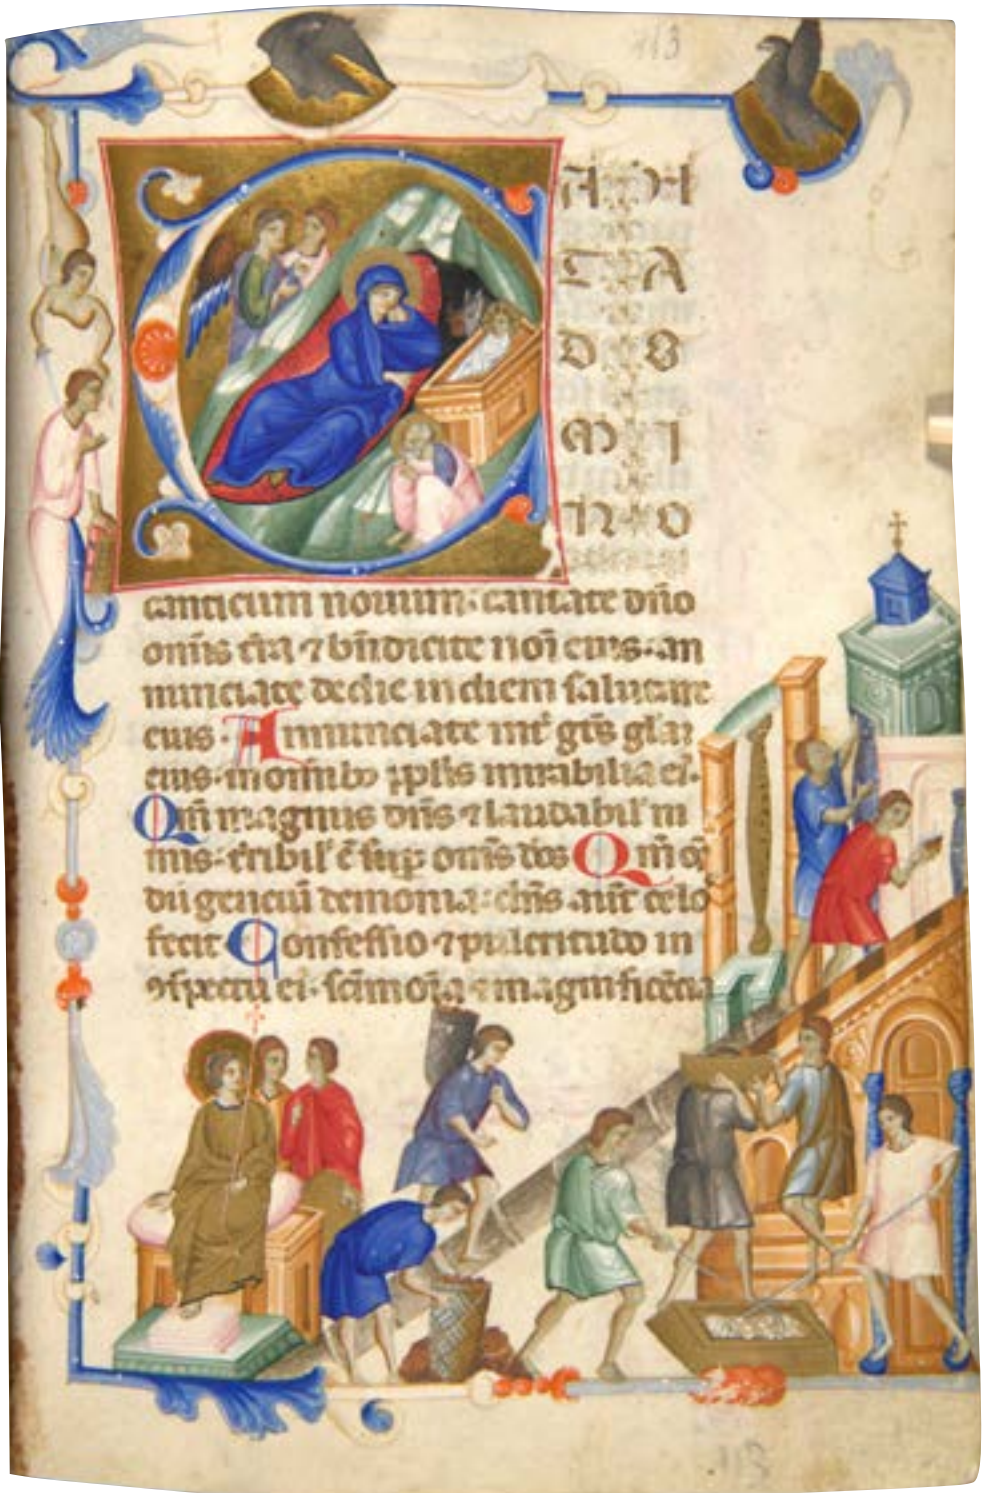 113
C A N
T A
D O
M I
N O
canticum nouum· cantate dño
omīs t̄ra ⁊ bñdicite noī eius· an
nunciate de die in diem salutare
eius· Annunciate int̄ gēs gl̄aꝫ
eius· in omībꝫ pplīs mirabilia eiꝰ·
Qm̄ magnus dñs ⁊ laudabil' ni
mis· t̄ribil' ē sup omīs dos Qm̄ oēs
dii genciū demonia: dñs aut̄ celos
fecit Confessio ⁊ pulcritudo in
ꝯspectu eiꝰ· sc̄imoīa ⁊ magnificēcia
113